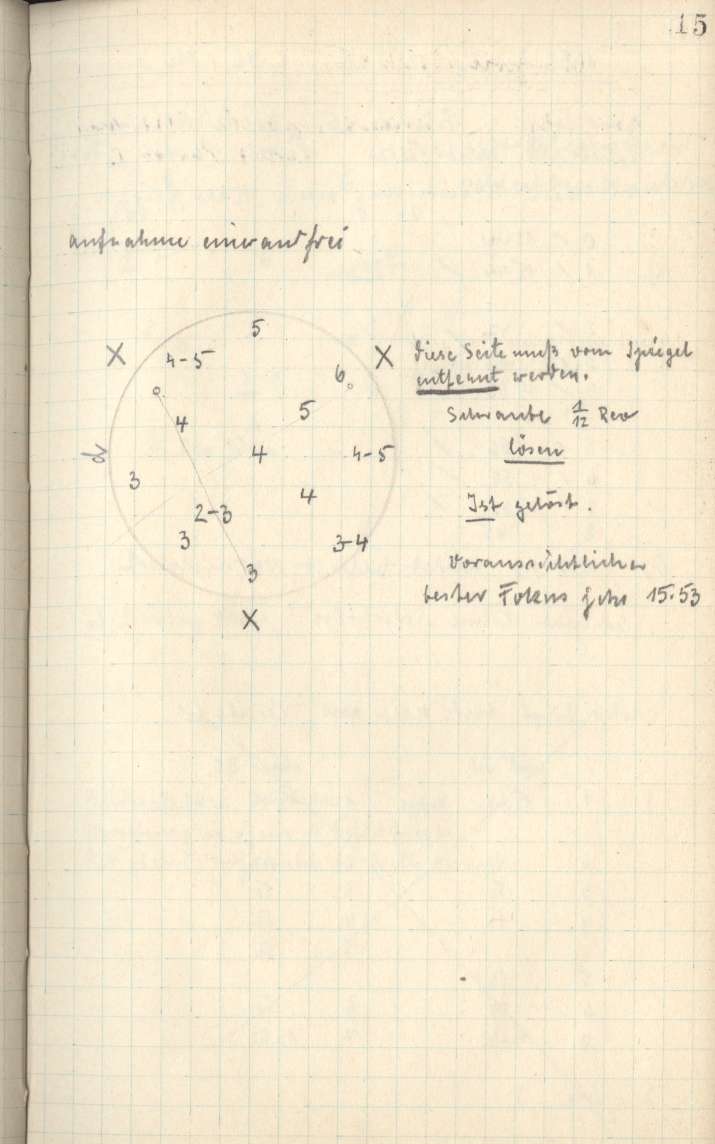 15
aufnahme einwandfrei
5
X
4-5
6
X
diese Seite muß vom Spiegel
entfernt werden.
5
Schraube 1/12 Rev
4
4
4-5
lösen
3
4
Ist gelöst.
2-3
3
3-4
Voraussichtlicher
3
bester Fokus jetzt 15.53
X